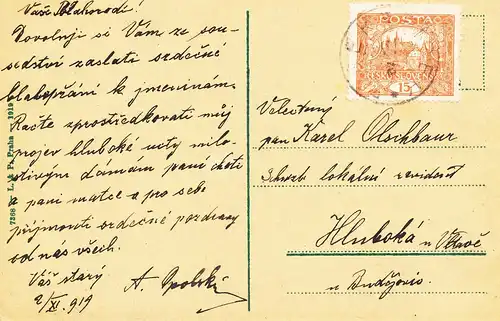 Vaše Blahorodí!
Dovoluji si Vám ze sou-
sedství zaslati srdečné
blahopřání k jmeninám.
Račte zprostředkovati můj
projev hluboké úcty milo-
stivým dámám paní choti
a paní matce a pro sebe
přijmouti srdečné pozdravy
od nás všech.
Váš starý
A.
2/XI. 919
7266 L. & P. Praha 1919
POSTA
ČESKO-SLOVENSKÁ
15
Velectěný
pan Karel Olschbaur
lokální revident
Hluboká n Vltavě
u Budějovic.